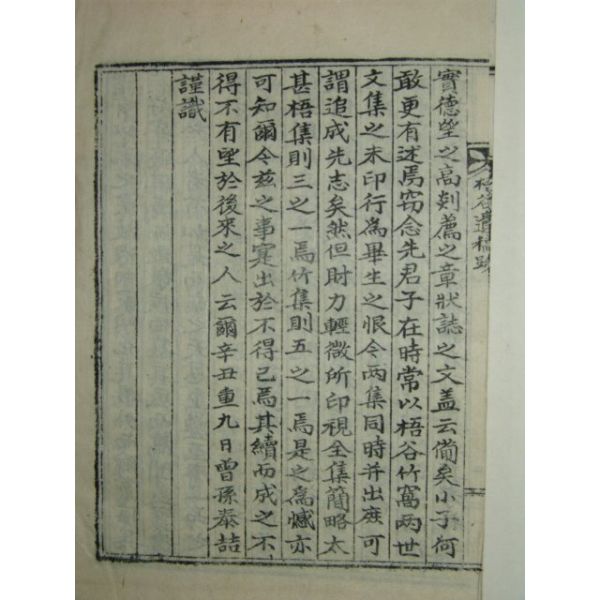 實德望之高剡薦之章狀誌之文盖云備矣小子何
敢更有述焉窃念先君子在時常以梧谷竹窩兩世
文集之未印行爲畢生之恨今两集同時并出庶可
謂追成先志矣然但財力輕微所印視全集簡略太
甚梧集則三之一焉竹集則五之一焉是之爲憾亦
可知爾今玆之事寔出於不得已焉其續而成之不
得不有望於後來之人云爾辛丑重九日曾孫泰喆
謹識
梧谷遺稿跋